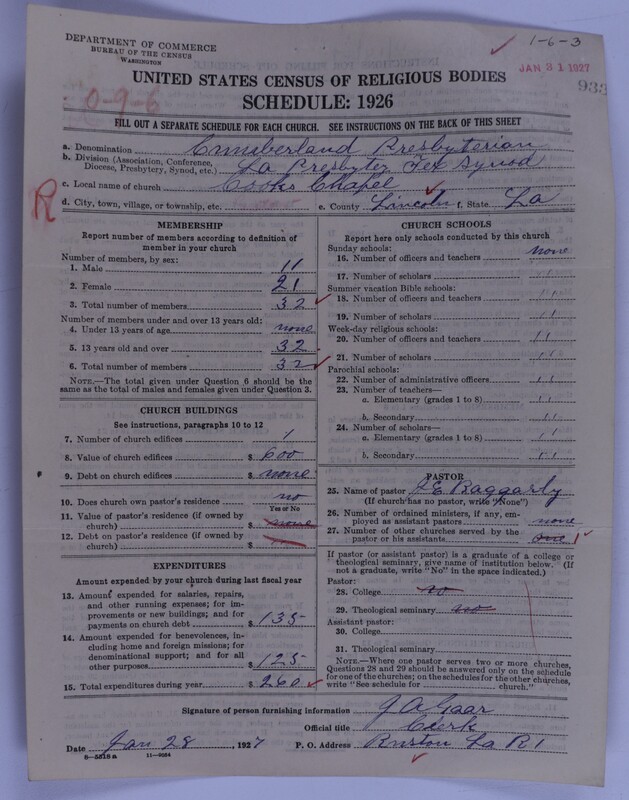 DEPARTMENT OF COMMERCE
BUREAU OF THE CENSUS
WASHINGTON
1-6-3
JAN 31 1927
933
UNITED STATES CENSUS OF RELIGIOUS BODIES
SCHEDULE: 1926
0-9-6
FILL OUT A SEPARATE SCHEDULE FOR EACH CHURCH. SEE INSTRUCTIONS ON THE BACK OF THIS SHEET
a. Denomination Cumberland Presbyterian
b. Division (Association, Conference, Diocese, Presbytery, Synod, etc.) La Presbyter Tex Synod
c. Local name of church Cooks Chapel
R
d. City, town, village, or township, etc. e. County Lincoln f. State La
MEMBERSHIP
Report number of members according to definition of
member in your church
Number of members, by sex:
1. Male 11
2. Female 21
3. Total number of members 32
Number of members under and over 13 years old:
4. Under 13 years of age none
5. 13 years old and over 32
6. Total number of members 32
NOTE.—The total given under Question 6 should be the
same as the total of males and females given under Question 3.
CHURCH BUILDINGS
See instructions, paragraphs 10 to 12
7. Number of church edifices 1
8. Value of church edifices $ 600
9. Debt on church edifices $ none
10. Does church own pastor's residence no
Yes or No
11. Value of pastor's residence (if owned by
church) $ none
12. Debt on pastor's residence (if owned by
church) $
EXPENDITURES
Amount expended by your church during last fiscal year
13. Amount expended for salaries, repairs,
and other running expenses; for im-
provements or new buildings; and for
payments on church debt $ 135
14. Amount expended for benevolences, in-
cluding home and foreign missions; for
denominational support; and for all
other purposes $ 125
15. Total expenditures during year $ 260
CHURCH SCHOOLS
Report here only schools conducted by this church
Sunday schools:
16. Number of officers and teachers none
17. Number of scholars ,,
Summer vacation Bible schools:
18. Number of officers and teachers ,,
19. Number of scholars ,,
Week-day religious schools:
20. Number of officers and teachers ,,
21. Number of scholars ,,
Parochial schools:
22. Number of administrative officers ,,
23. Number of teachers—
a. Elementary (grades 1 to 8) ,,
b. Secondary ,,
24. Number of scholars—
a. Elementary (grades 1 to 8) ,,
b. Secondary ,,
PASTOR
25. Name of pastor E Baggarly
(If church has no pastor, write "None")
26. Number of ordained ministers, if any, em-
ployed as assistant pastors none
27. Number of other churches served by the
pastor or his assistants one 1
If pastor (or assistant pastor) is a graduate of a college or
theological seminary, give name of institution below. (If
not a graduate, write "No" in the space indicated.)
Pastor:
28. College no
29. Theological seminary no
Assistant pastor:
30. College
31. Theological seminary
NOTE.—Where one pastor serves two or more churches,
Questions 28 and 29 should be answered only on the schedule
for one of the churches; on the schedules for the other churches,
write "See schedule for church."
Signature of person furnishing information J A Gaar
Official title Clerk
Date Jan 28, 1927 P. O. Address Ruston La R 1
8-5518 a 11-9054